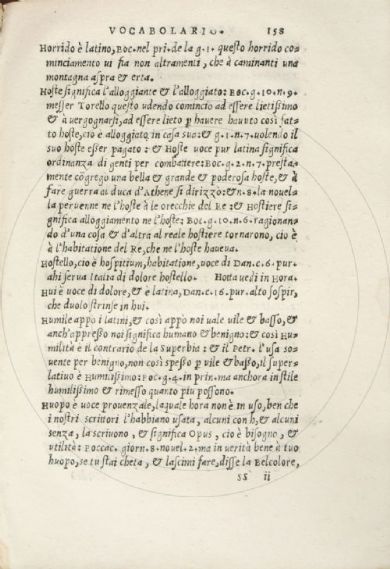 VOCABOLARIO. 158
Horrido è latino, Boc. nel pri. de la g. 1. questo horrido co-
minciamento ui fia non altramenti, che à caminanti una
montagna aspra & erta.
Hoste significa l'alloggiante & l'alloggiato: Boc. g. 10. n. 9.
messer Torello questo udendo comincio ad essere lietissimo
& à uergognarsi, ad essere lieto p hauere hauuto così fat-
to hoste, cio è alloggiato in casa sua: & g. 1. n. 7. uolendo il
suo hoste esser pagato: & Hoste uoce pur latina significa
ordinanza di genti per combattere: Boc. g. 2. n. 7. presta-
mente cōgregò una bella & grande & poderosa hoste, & à
fare guerra al duca d'Athene si dirizzò: & n. 8. la nouel-
la peruenne ne l'hoste à le orecchie del Re: & Hostiere si-
gnifica alloggiamento ne l'hoste: Boc. g. 10. n. 6. ragionan-
do d'una cosa & d'altra al reale hostiere tornarono, cio è
à l'habitatione del Re, che ne l'hoste haueua.
Hostello, cio è hospitium, habitatione, uoce di Dan. c. 6. pur.
ahi serua Italia di dolore hostello. Hotta uedi in Hora.
Hui è uoce di dolore, & è latina, Dan. c. 16. pur. alto sospir,
che duolo strinse in hui.
Humile appo i latini, & così appo noi uale uile & basso, &
anch'appresso noi significa humano & benigno: & così Hu-
milità è il contrario de la Superbia: & il Petr. l'usa so-
uente per benigno, non così spesso p uile & basso, il super-
latiuo è Humilissimo: Boc. g. 4. in prin. ma anchora in stile
humilissimo & rimesso quanto piu possono.
Huopo è uoce prouenzale, laquale hora non è in uso, ben che
i nostri scrittori l'habbiano usata, alcuni con h, & alcuni
senza, la scriuono, & significa Opus, cio è bisogno, &
utilità: Boccac. giorn. 8. nouel. 2. ma in uerità bene à tuo
huopo, se tu stai cheta, & lascimi fare, disse la Belcolore,
SS ii